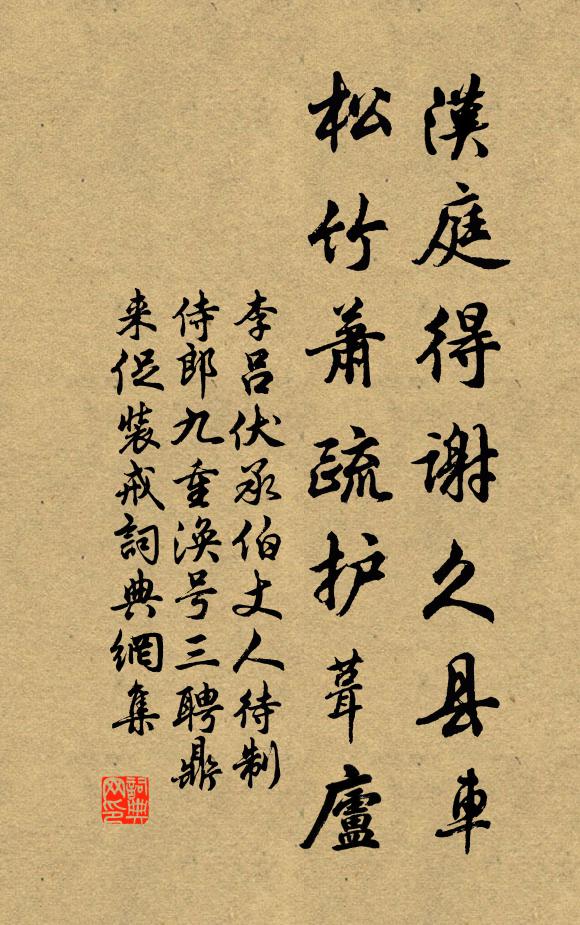 漢庭得谢久县車
松竹蕭疏护葺廬
李吕伏承伯丈人待制
侍郎九重涣号三聘鼎
来促装戒詞典網集
詞典网印